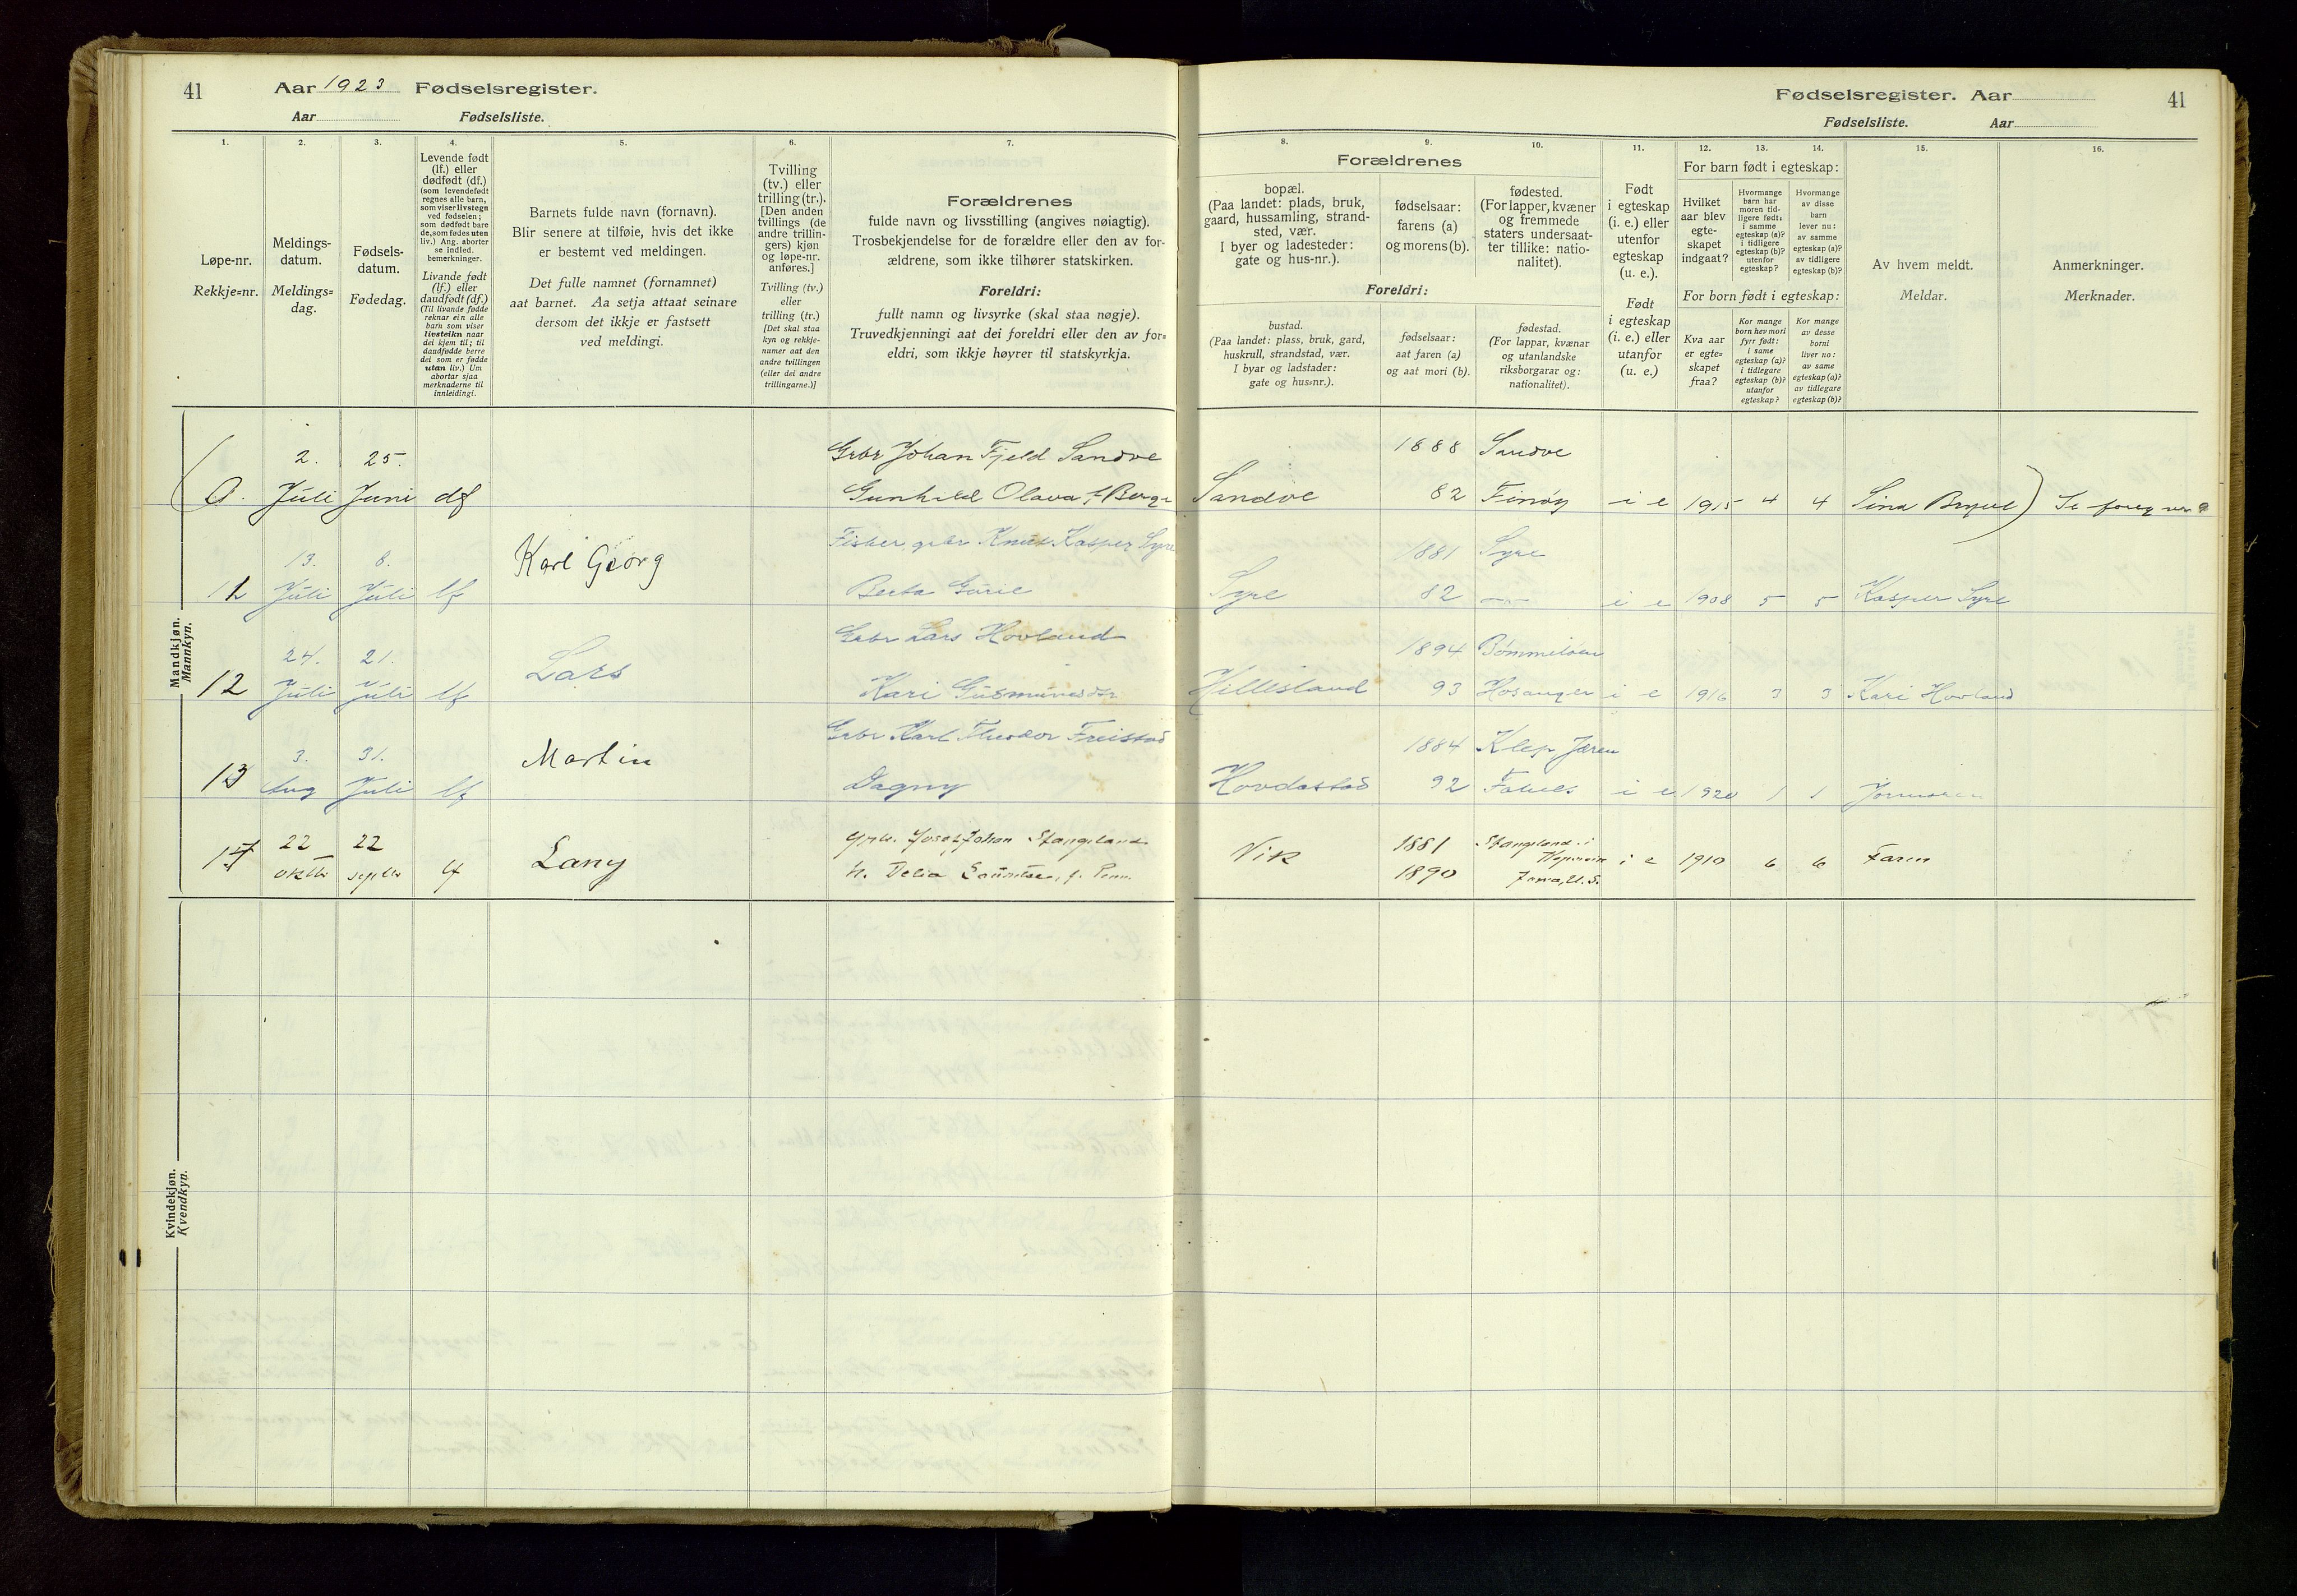 41
Aar 1923 Fødselsregister.
Aar Fødselsliste.
Fødselsregister. Aar
41
Fødselsliste. Aar
1.
Løpe-nr.
Rekkje=nr.
2.
Meldings-
datum.
Meldings=
dag.
3.
Fødsels-
datum.
Fødedag.
4.
Levende født
(lf.) eller
dødfødt (df.)
(som levendefødt
regnes alle barn,
som viser livstegn
ved fødselen;
som dødfødt bare
de, som fødes uten
liv.) Ang. aborter
se indled.
bemerkninger.
Livande født
(lf.) eller
daudfødt (df.)
(Til livande fødde
reknar ein alle
barn som viser
livsteikn naar
dei kjem til; til
daudfødde berre
dei som er fødde
utan liv.) Um
abortar sjaa
merknaderne til
innleidingi.
5.
Barnets fulde navn (fornavn).
Blir senere at tilføie, hvis det ikke
er bestemt ved meldingen.
Det fulle namnet (fornamnet)
aat barnet. Aa setja attaat seinare
dersom det ikkje er fastsett
ved meldingi.
6.
Tvilling
(tv.) eller
trilling (tr.).
[Den anden
tvillings (de
andre trillin-
gers) kjøn
og løpe-nr.
anføres.]
Tvilling (tv.)
eller
trilling (tr.)
[Det skal staa
kyn og rekkje-
numer aat den
andre tvillingen
(eller dei andre
trillingarne.)]
7.
Forældrenes
fulde navn og livsstilling (angives nøiagtig).
Trosbekjendelse for de forældre eller den av for-
ældrene, som ikke tilhører statskirken.
Foreldri:
fullt namn og livsyrke (skal staa nøgje).
Truvedkjenningi aat dei foreldri eller den av for=
eldri, som ikkje høyrer til statskyrkja.
8.
Forældrenes
bopæl.
(Paa landet: plads, bruk,
gaard, hussamling, strand-
sted, vær.
I byer og ladesteder:
gate og hus-nr.).
Foreldri:
bustad.
(Paa landet: plass, bruk, gard,
huskrull, strandstad, vær.
I byar og ladstader:
gate og hus=nr.).
9.
fødselsaar:
farens (a)
og morens (b).
fødselsaar:
aat faren (a)
og aat mori (b).
10.
fødested.
(For lapper, kvæner
og fremmede
staters undersaat-
ter tillike: natio-
nalitet).
fødestad.
(For lappar, kvænar
og utanlandske
riksborgarar og:
nationalitet).
11.
Født
i egteskap
(i. e.) eller
utenfor
egteskap
(u. e.).
Født
i egteskap
(i. e.) eller
utanfor
(u. e.)
For barn født i egteskap:
12.
Hvilket
aar blev
egte-
skapet
indgaat?
For born født i egteskap:
Kva aar
er egte=
skapet
fraa?
13.
Hvormange
barn har
moren tid-
ligere født:
i samme
egteskap (a)?
i tidligere
egteskap (b)?
utenfor
egteskap?
Kor mange
born hev mori
fyrr født:
i same
egteskap (a)?
i tidlegare
egteskap (b)?
utanfor
egteskap?
14.
Hvormange
av disse
barn
lever nu:
av samme
egteskap (a)?
av tidligere
egteskap (b)?
Kor mange
av desse
borni
liver no:
av same
egteskap (a)?
av tidlegare
egteskap (b)?
15.
Av hvem meldt.
Meldar.
16.
Anmerkninger.
Merknader.
Mandkjøn.
Mannkyn.
2. 25. Grbr Johan Fjeld Sandve 1888 Sandve
(0. Juli Juni df Gunhild Olava f. Berge Sandve 82 Finnøy i e 1915 4 4 Sina ) Se foreg
13. 8. Karl Georg Fisker grbr Knut Kasper Syre 1881 Syre
11 Juli Juli lf Berta Gurie Syre 82 —"— i e 1908 5 5 Kasper Syre
24. 21. Lars Grbr Lars Hovland 1894 Bømmeløen
12 Juli Juli lf Kari Gudmundsdtr Hillesland 93 Hosanger i e 1916 3 3 Kari Hovland
3. 31. Martin Grbr Karl Theodor Freistad 1884 Klep Jæren
13 Aug Juli lf Dagny Hovdastad 92 i e 1920 1 1 Jormoren
22 22 Lany Josef Johan Stangeland 1881 Stangeland i
oktbr septbr lf H. Delia f. Penn. Vik 1890 Iowa, U. S. i e 1910 6 6 Faren
Kvindekjøn.
Kvendkyn.